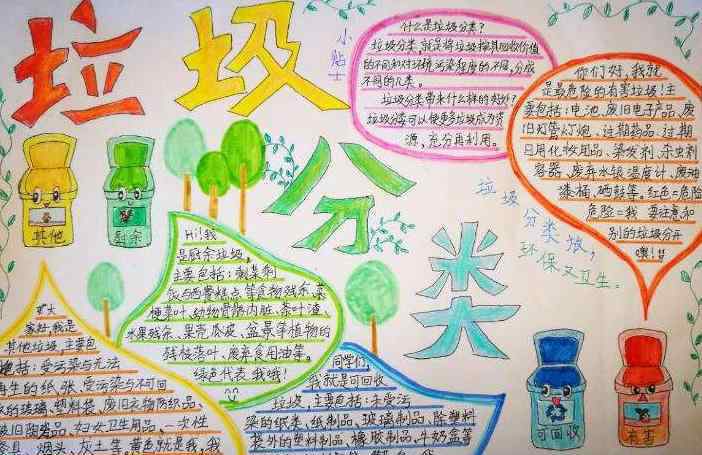 垃圾
分
类
小贴士
什么是垃圾分类?
垃圾分类,就是将垃圾按其回收价值
的不同和对环境污染程度的不同,分成
不同的几类。
垃圾分类带来什么样的好处?
垃圾分类可以使更多垃圾成为资
源,充分再利用。
你们好,我就
是最危险的有害垃圾!主
要包括:电池、废旧电子产品、废
旧灯管灯泡、过期药品、过期
日用化妆用品、染发剂、杀虫剂
容器、废弃水银温度计、废油
漆桶、硒鼓等。红色=危险
危险=我 要注意和
别的垃圾分开
噢!!
垃圾
分类放,
环保又卫生。
其他
厨余
Hi!我
是厨余垃圾,
主要包括:剩菜剩
饭与西餐糕点等食物残余、菜
梗菜叶、动物骨骼内脏、茶叶渣、
水果残余、果壳瓜皮、盆景等植物的
残枝落叶、废弃食用油等。
绿色代表我哦!
大
家好,我是
其他垃圾,主要包
括:受污染与无法
再生的纸张、受污染与不可回
收的玻璃、塑料袋、废旧衣物防织品、
破旧陶瓷品、妇女卫生用品、一次性
餐具、烟头、灰土等,黄色就是我,我
同学们,
我就是可回收
垃圾,主要包括:未受污
染的纸类、纸制品、玻璃制品、除塑料
袋外的塑料制品、橡胶制品、牛奶盒等
可回收
有害